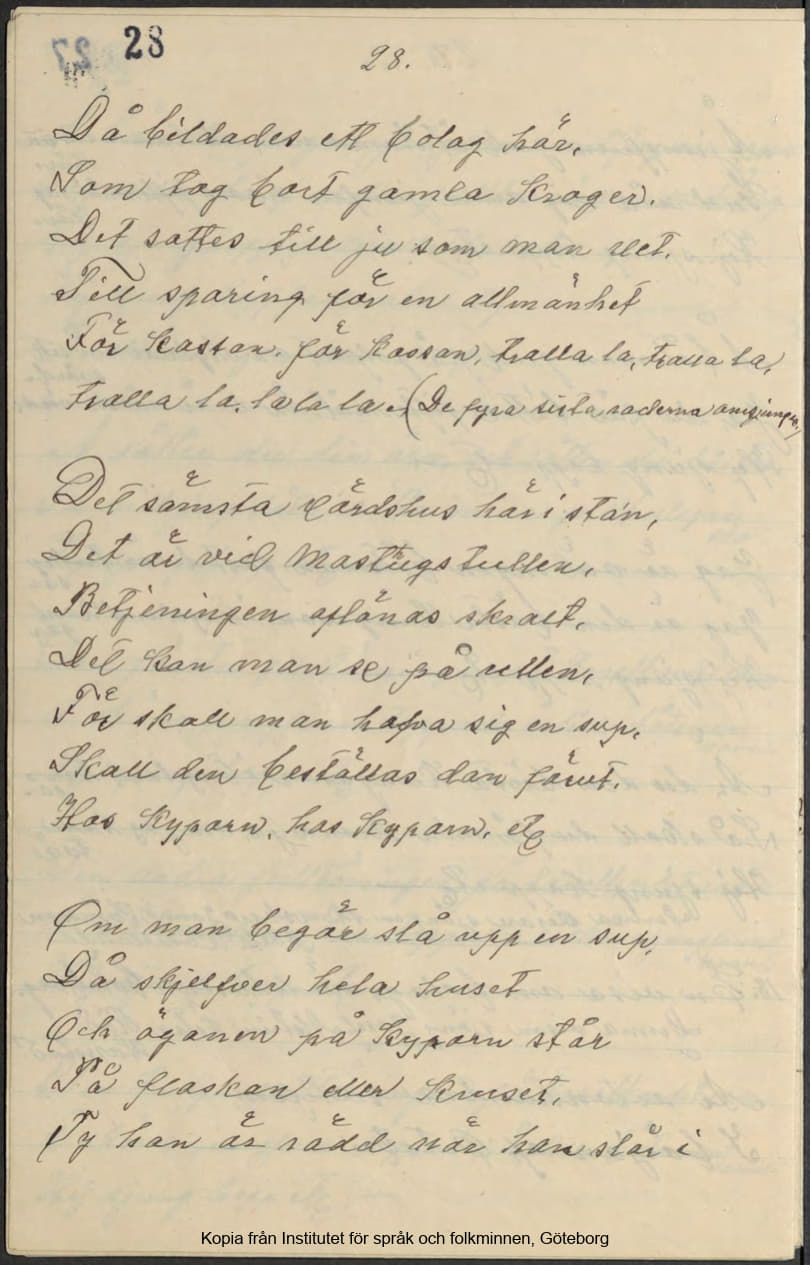 28
28.
Då bildades ett bolag här,
Som tog bort gamla kroger.
Det sattes till ju som man vet.
Till sparing för en allmänhet
För kassan, för kassan, tralla la, tralla la,
tralla la, la la la. (De fyra sista raderna omsjunges.)
Det sämsta värdshus här i sta'n,
Det är vid Mastugstullen,
Betjeningen aflönas skralt,
Det kan man se på rullen,
För skall man hafva sig en sup,
Skall den beställas dan förut.
Hos kyparn, hos kyparn, etc
Om man begär slå upp en sup,
Då skjelfver hela huset
Och ögonen på kyparn står
På flaskan eller kruset,
Ty han är rädd när han slår i
Kopia från Institutet för språk och folkminnen, Göteborg